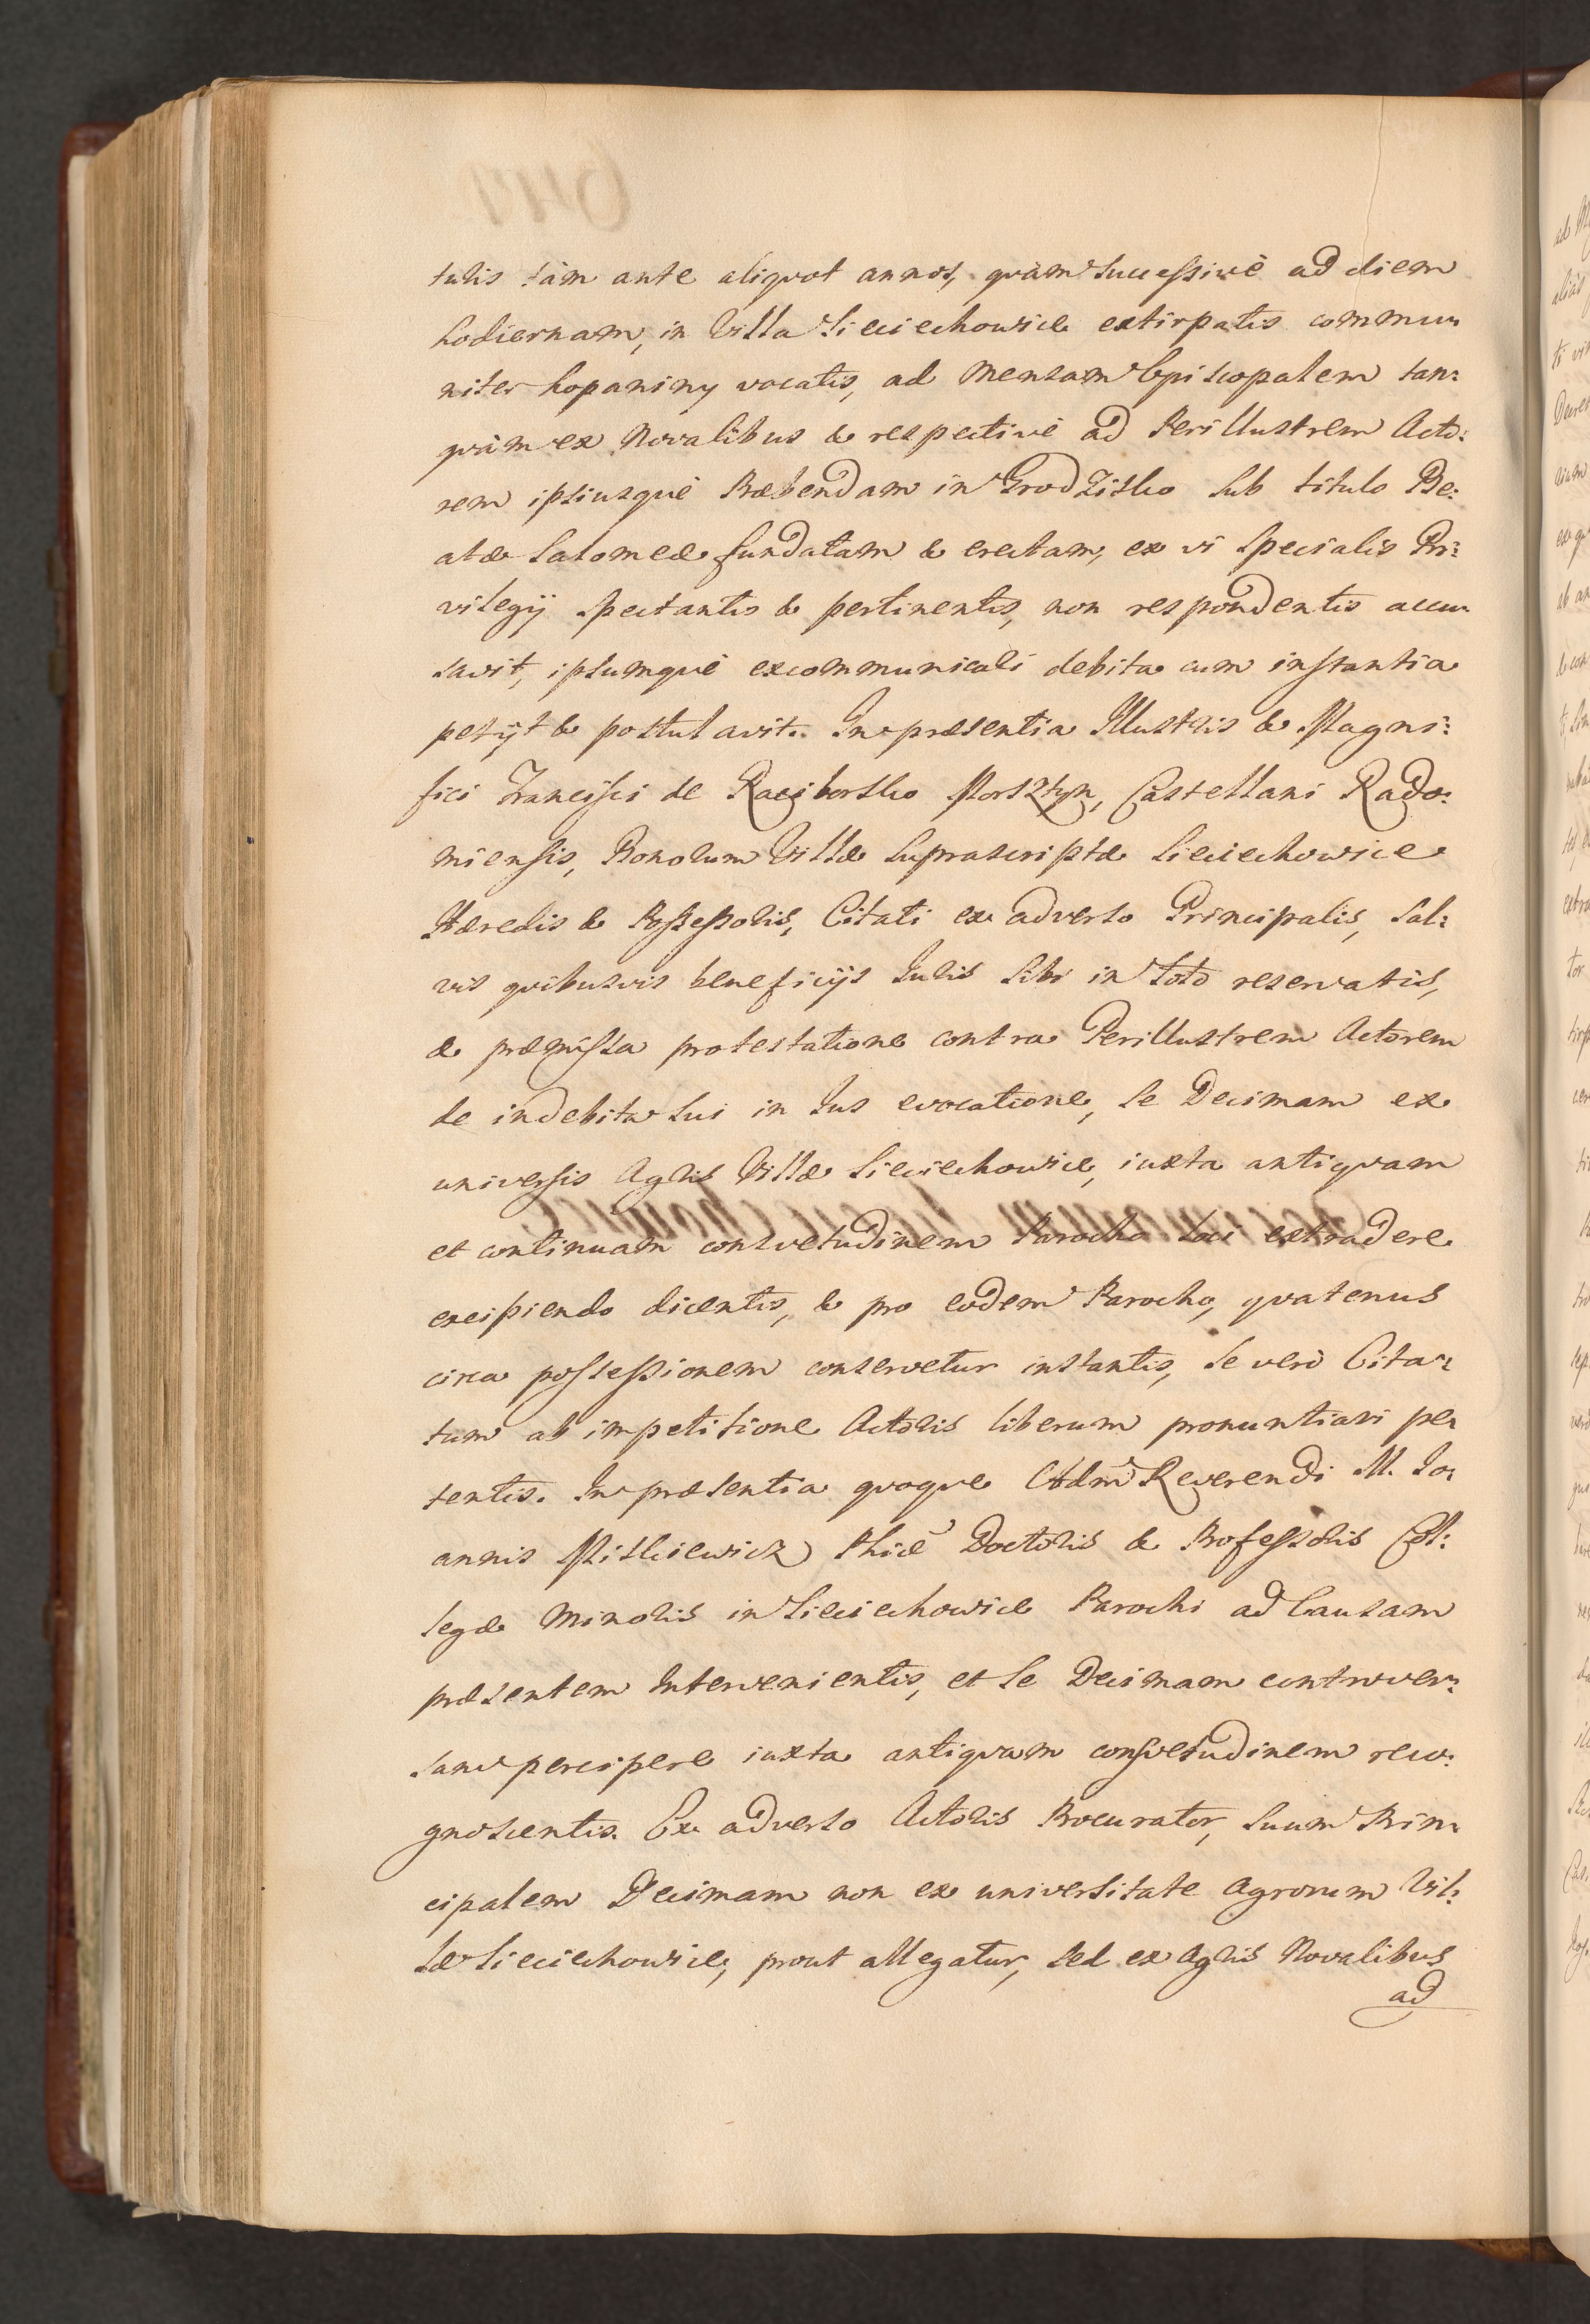 turis tàm ante aliquot annos, quàm successivè ad diem
hodiernam, in Villa Sieciechowice extirpatis commu-
niter kopaniny vocatis, ad Mensam Episcopalem tan:
quàm ex Novalibus & respectivè ad Perillustrem Acto:
rem ipsiusquè Præbendam in Grodzisko sub titulo Be:
atæ Salomeæ fundatam & erectam, ex vi specialis Pri:
vilegij spectantis & pertinentis, non respondentis accu-
savit, ipsumquè excommunicari debita cum instantia
petijt & postulavit. In præsentia Illustris & Magni:
fici Francisci de Raciborsko Morsztyn, Castellani Rado:
miensis, Bonorum Villæ suprascriptæ Sieciechowice
Hæredis & Possessoris, Citati ex adverso Principalis, sal:
vis quibusvis beneficijs Iuris sibi in toto reservatis,
& præmissa protestatione contra Perillustrem Actorem
de indebita sui in Ius evocatione, se Decimam ex
universis Agris Villæ Sieciechowice, iuxta antiquam
et continuam consvetudinem Parocho Loci extradere
excipiendo dicentis, & pro eodem Parocho, quatenus
circa possessionem conservetur instantis, se verò Cita-
tum ab impetitione Actoris liberum pronuntiari pe-
tentis. In præsentia quoque Adm Reverendi M. Io-
annis Miskiewicz Phiæ Doctoris & Professoris Col:
legæ Minoris in Sieciechowice Parochi ad Causam
præsentem Intervenientis, et se Decimam controver-
sam percipere iuxta antiquam consvetudinem reco:
gnoscentis. Ex adverso Actoris Procurator, suum Prin-
cipalem Decimam non ex universitate Agrorum Vil:
læ Sieciechowice, prout allegatur, sed ex Agris Novalibus
ad